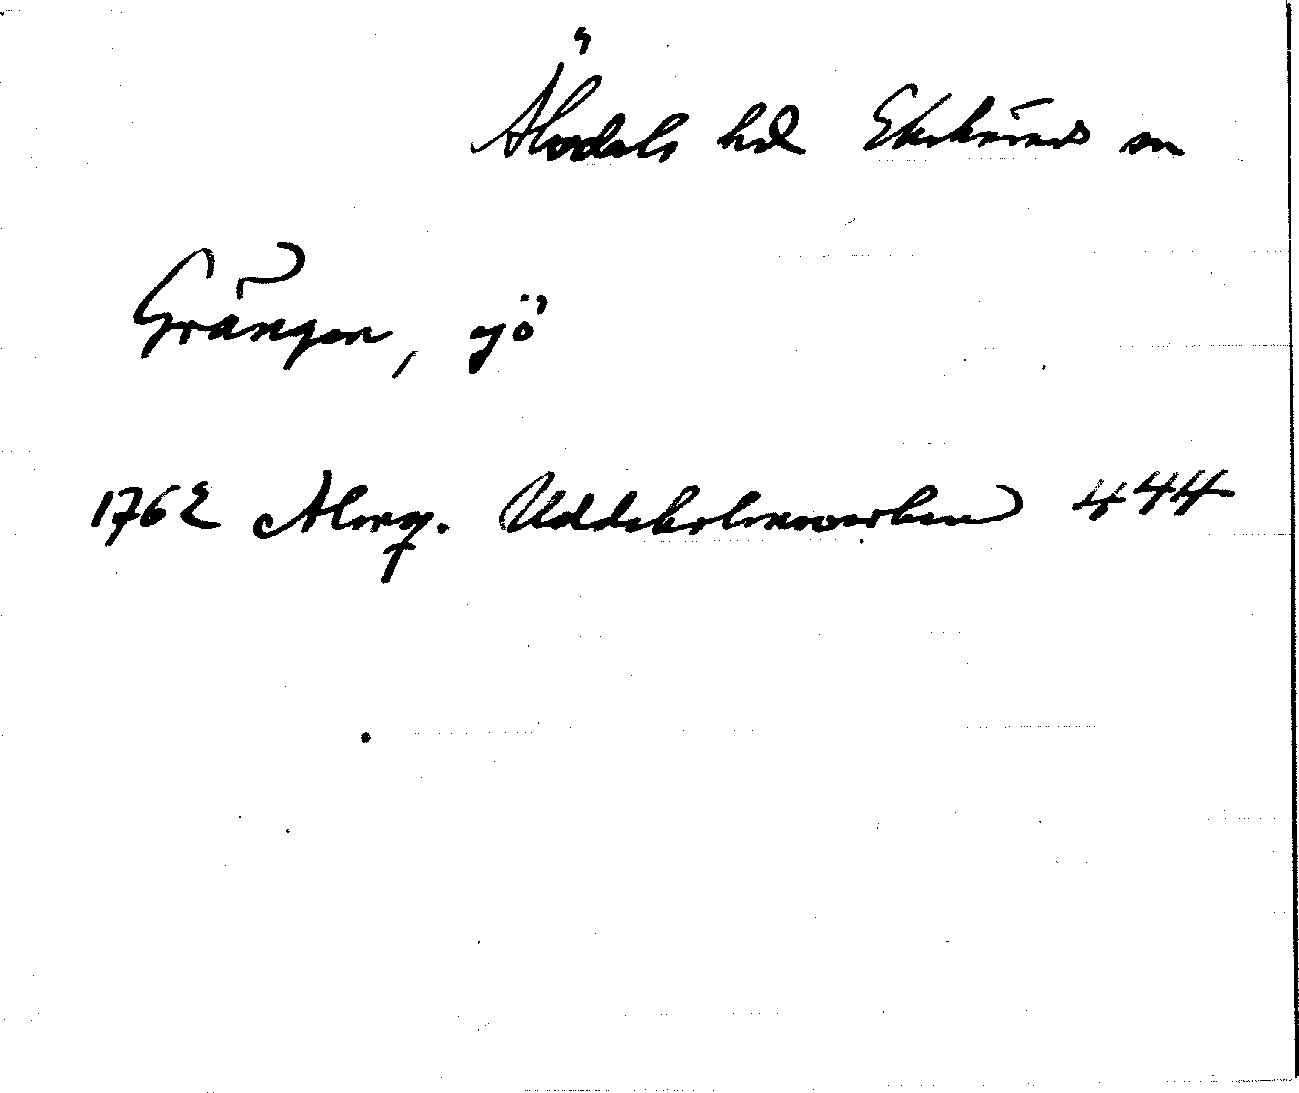 Älvdals hd Ekshärads sn
Grången, sjö
1762 Almq. Uddeholmsverken 444